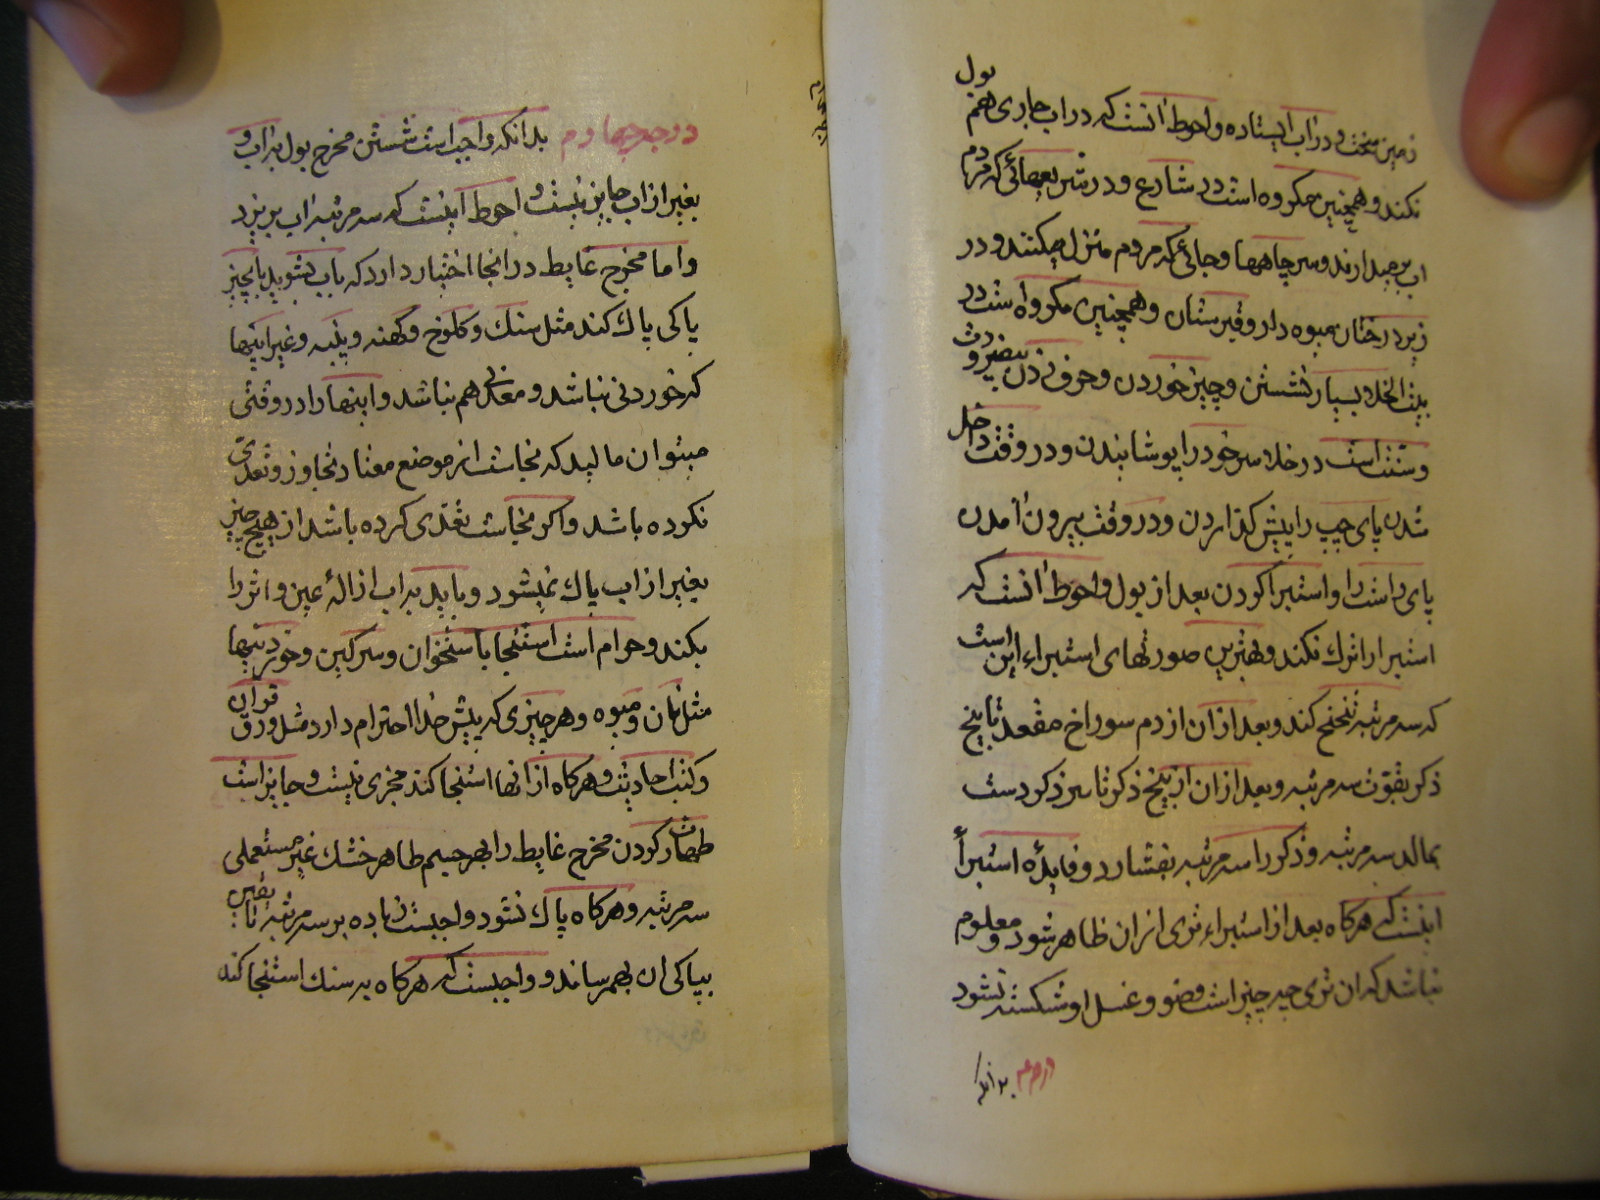 زمین سخت و در آب ایستاده و احوط آنست که در آب جاری هم بول
نکنند و همچنین مکروه است در شارع و در مردم
آب بر میدارند و سر چاهها و جائی که مردم منزل میکنند و در
زیر درختان میوه دار و قبرستان و همچنین مکروه است در
بیت الخلا بسیار نشستن و چیز خوردن و حرف زدن بیضرورت
و سنت است در خلا سر خود را پوشانیدن و در وقت داخل
شدن پای چپ را پیش گذاردن و در وقت بیرون آمدن
پای راست را و استبرا کردن بعد از بول و احوط آنست که
استبرا را ترک نکند و بهترین صورتهای استبراء این است
که سه مرتبه تنحنح کند و بعد از آن از دم سوراخ مقعد تا بیخ
ذکر بقوت سه مرتبه و بعد از آن از بیخ ذکر تا سر ذکر دست
بمالد سه مرتبه و ذکر را سه مرتبه بفشارد و فایدهٔ استبرأ
اینست که هرگاه بعد از استبراء تری از آن ظاهر شود و معلوم
نباشد که آن تری چه چیز است وضو و غسل او شکسته نشود
بدانکه
در جهارم بدانکه واجب است شستن مخرج بول به آب و
بغیر از آب جایز نیست و احوط اینست که سه مرتبه آب بریزد
و اما مخرج غایط در آنجا اختیار دارد که بآب بشوید یا بچیز
پاکی پاک کند مثل سنک و کلوخ و کهنه و پنبه و غیر اینها
که خوردنی نباشد و معدنی هم نباشد و اینها را در وقتی
میتوان مالید که نجاست از موضع معتاد تجاوز و تعدی
نکرده باشد و اگر نجاست تعدی کرده باشد از هیچ چیز
بغیر از آب پاک نمیشود و باید به آب ازالهٔ عین و اثر را
بکند و حرام است استنجا باستخوان و سرکین و خوردنیها
مثل نان و میوه و هر چیزی که پیش خدا احترام دارد مثل ورق قرآن
و کتب احادیث و هرگاه از آنها استنجا کند مجزی نیست و جایز است
طهارت کردن مخرج غایط را بهر جسم طاهر خشک غیر مستعملی
سه مرتبه و هرگاه پاک نشود واجبست زیاده بر سه مرتبه تا یقین
بپاکی آن بهم رساند و واجبست که هرگاه به سنک استنجا کند